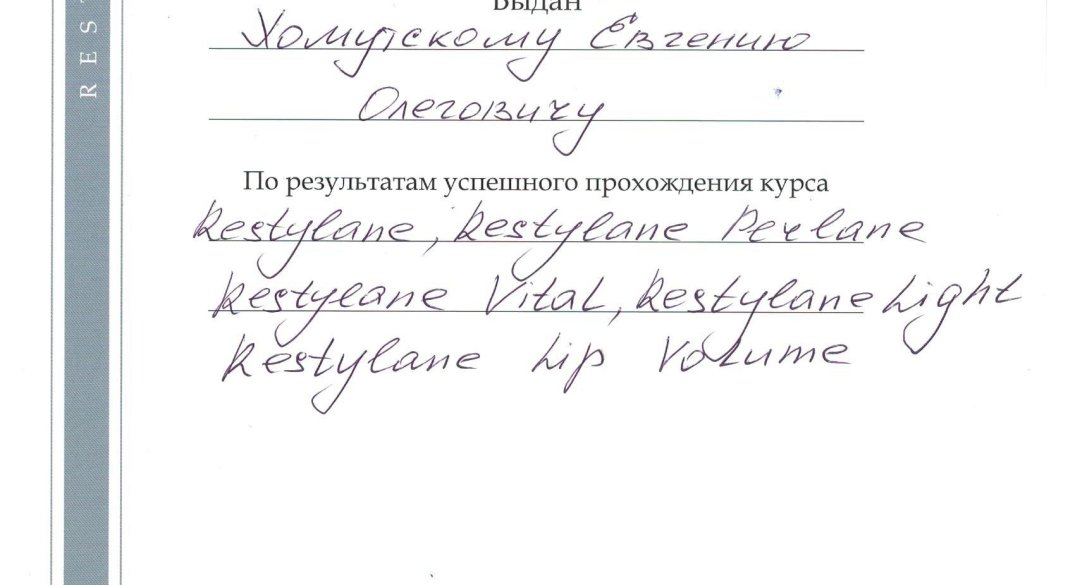 Выдан
Хомутскому Евгению
Олеговичу
По результатам успешного прохождения курса
Restylane, Restylane Perlane
Restylane Vital, Restylane Light
Restylane Lip Volume
REST